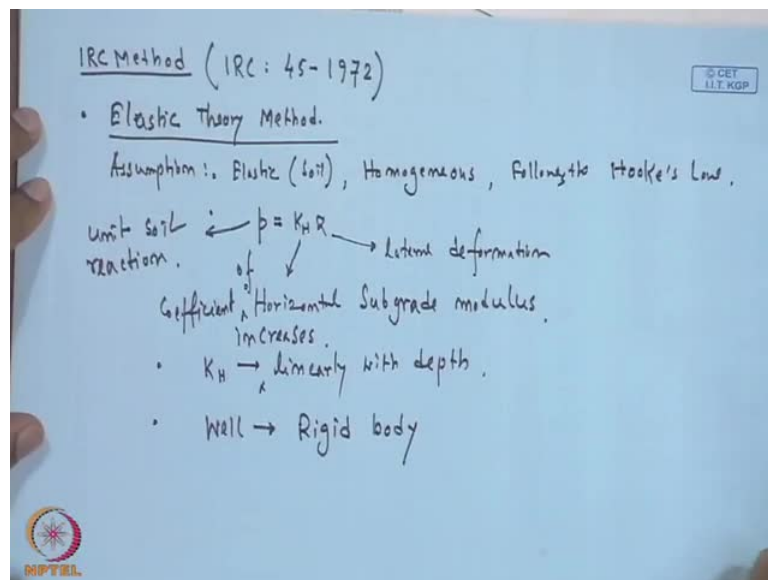 IRC Method (IRC : 45-1972)
© CET
I.I.T. KGP
• Elastic Theory Method.
Assumption :. Elastic (Soil), Homogeneous, Follows the Hooke's Law.
unit soil reaction. ← p = K_H R → Lateral deformation
Coefficient of Horizontal Subgrade modulus.
• K_H → increases linearly with depth.
• Well → Rigid body
NPTEL